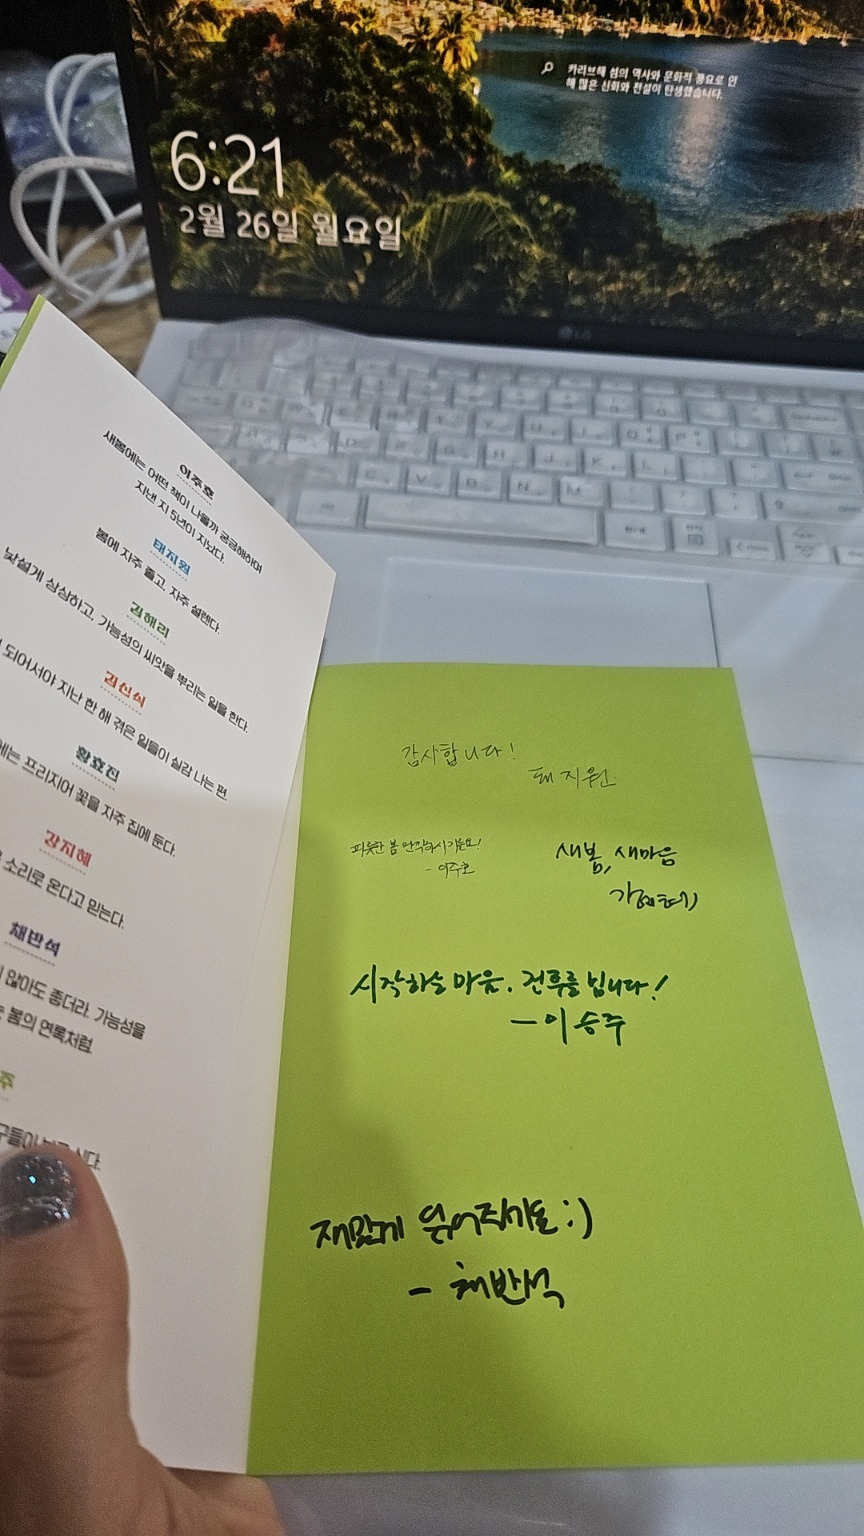 카리브해 섬의 역사와 문화적 풍요로 인
해 많은 신화와 전설이 탄생했습니다.
6:21
2월 26일 월요일
LG
이주호
새봄에는 어떤 책이 나올까 궁금해하며
지낸 지 5년이 지났다.
태지원
봄에 자주 졸고, 자주 설렌다.
김해리
낯설게 상상하고, 가능성의 씨앗을 뿌리는 일을 한다.
김신식
되어서야 지난 한 해 겪은 일들이 실감 나는 편.
황효진
에는 프리지어 꽃을 자주 집에 둔다.
강지혜
소리로 온다고 믿는다.
채반석
않아도 좋더라. 가능성을
봄의 연록처럼.
주
감사합니다!
태지원
봄 만끽하시기를요!
- 이주호
새봄, 새마음
시작하는 마음. 건투를 빕니다!
- 이승주
재밌게 읽어주시기를 :)
- 채반석